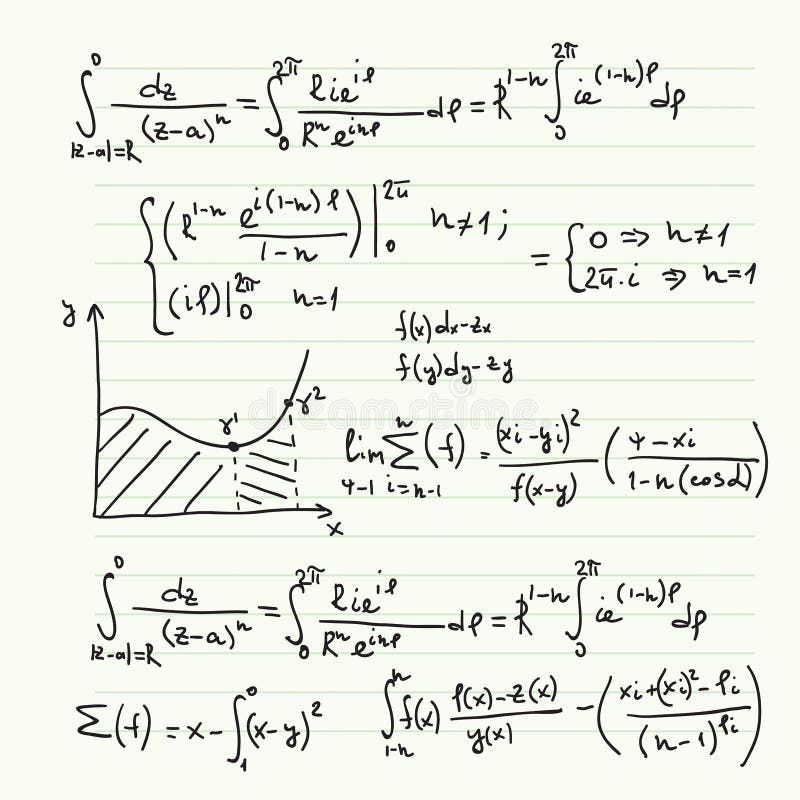 ∫_{|z-a|=R}^{0} dz/(z-a)^n = ∫_{0}^{2π} Rie^{iρ}/(R^n e^{inρ}) dρ = R^{1-n} ∫_{0}^{2π} ie^{(1-n)ρ} dρ
{ (R^{1-n} e^{i(1-n)ρ}/(1-n)) |_{0}^{2π} n≠1;
(iρ)|_{0}^{2π} n=1
= { 0 ⇒ n≠1
2π·i ⇒ n=1
y
γ1 γ2
x
f(x)dx-zx
f(y)dy-zy
lim_{φ-1} ∑_{i=n-1}^{n} (f) = (xi-yi)^2/f(x-y) (φ-xi/(1-n(cosα)))
dreamstime
∫_{|z-a|=R}^{0} dz/(z-a)^n = ∫_{0}^{2π} Rie^{iρ}/(R^n e^{inρ}) dρ = R^{1-n} ∫_{0}^{2π} ie^{(1-n)ρ} dρ
∑(f) = x-∫_{1}^{0}(x-y)^2 ∫_{1-n}^{n} f(x) ρ(x)-z(x)/y(x) - (xi+(xi)^2-ρi/(n-1)^{ρi})